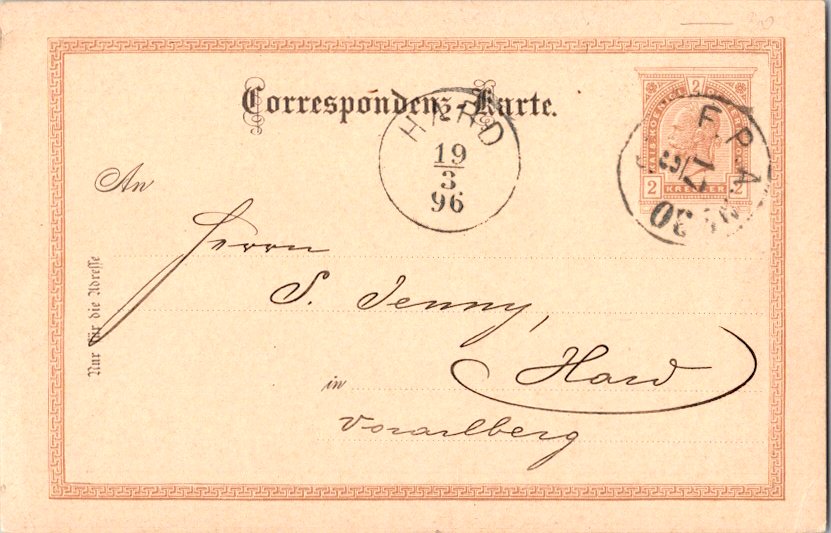 Correspondenz-Karte.
2
2 KREUZER 2
HARD
19
3
96
F.P.A.
17
3
30
An
Herrn
S. Jenny,
in Hard
Vorarlberg
Nur für die Adresse